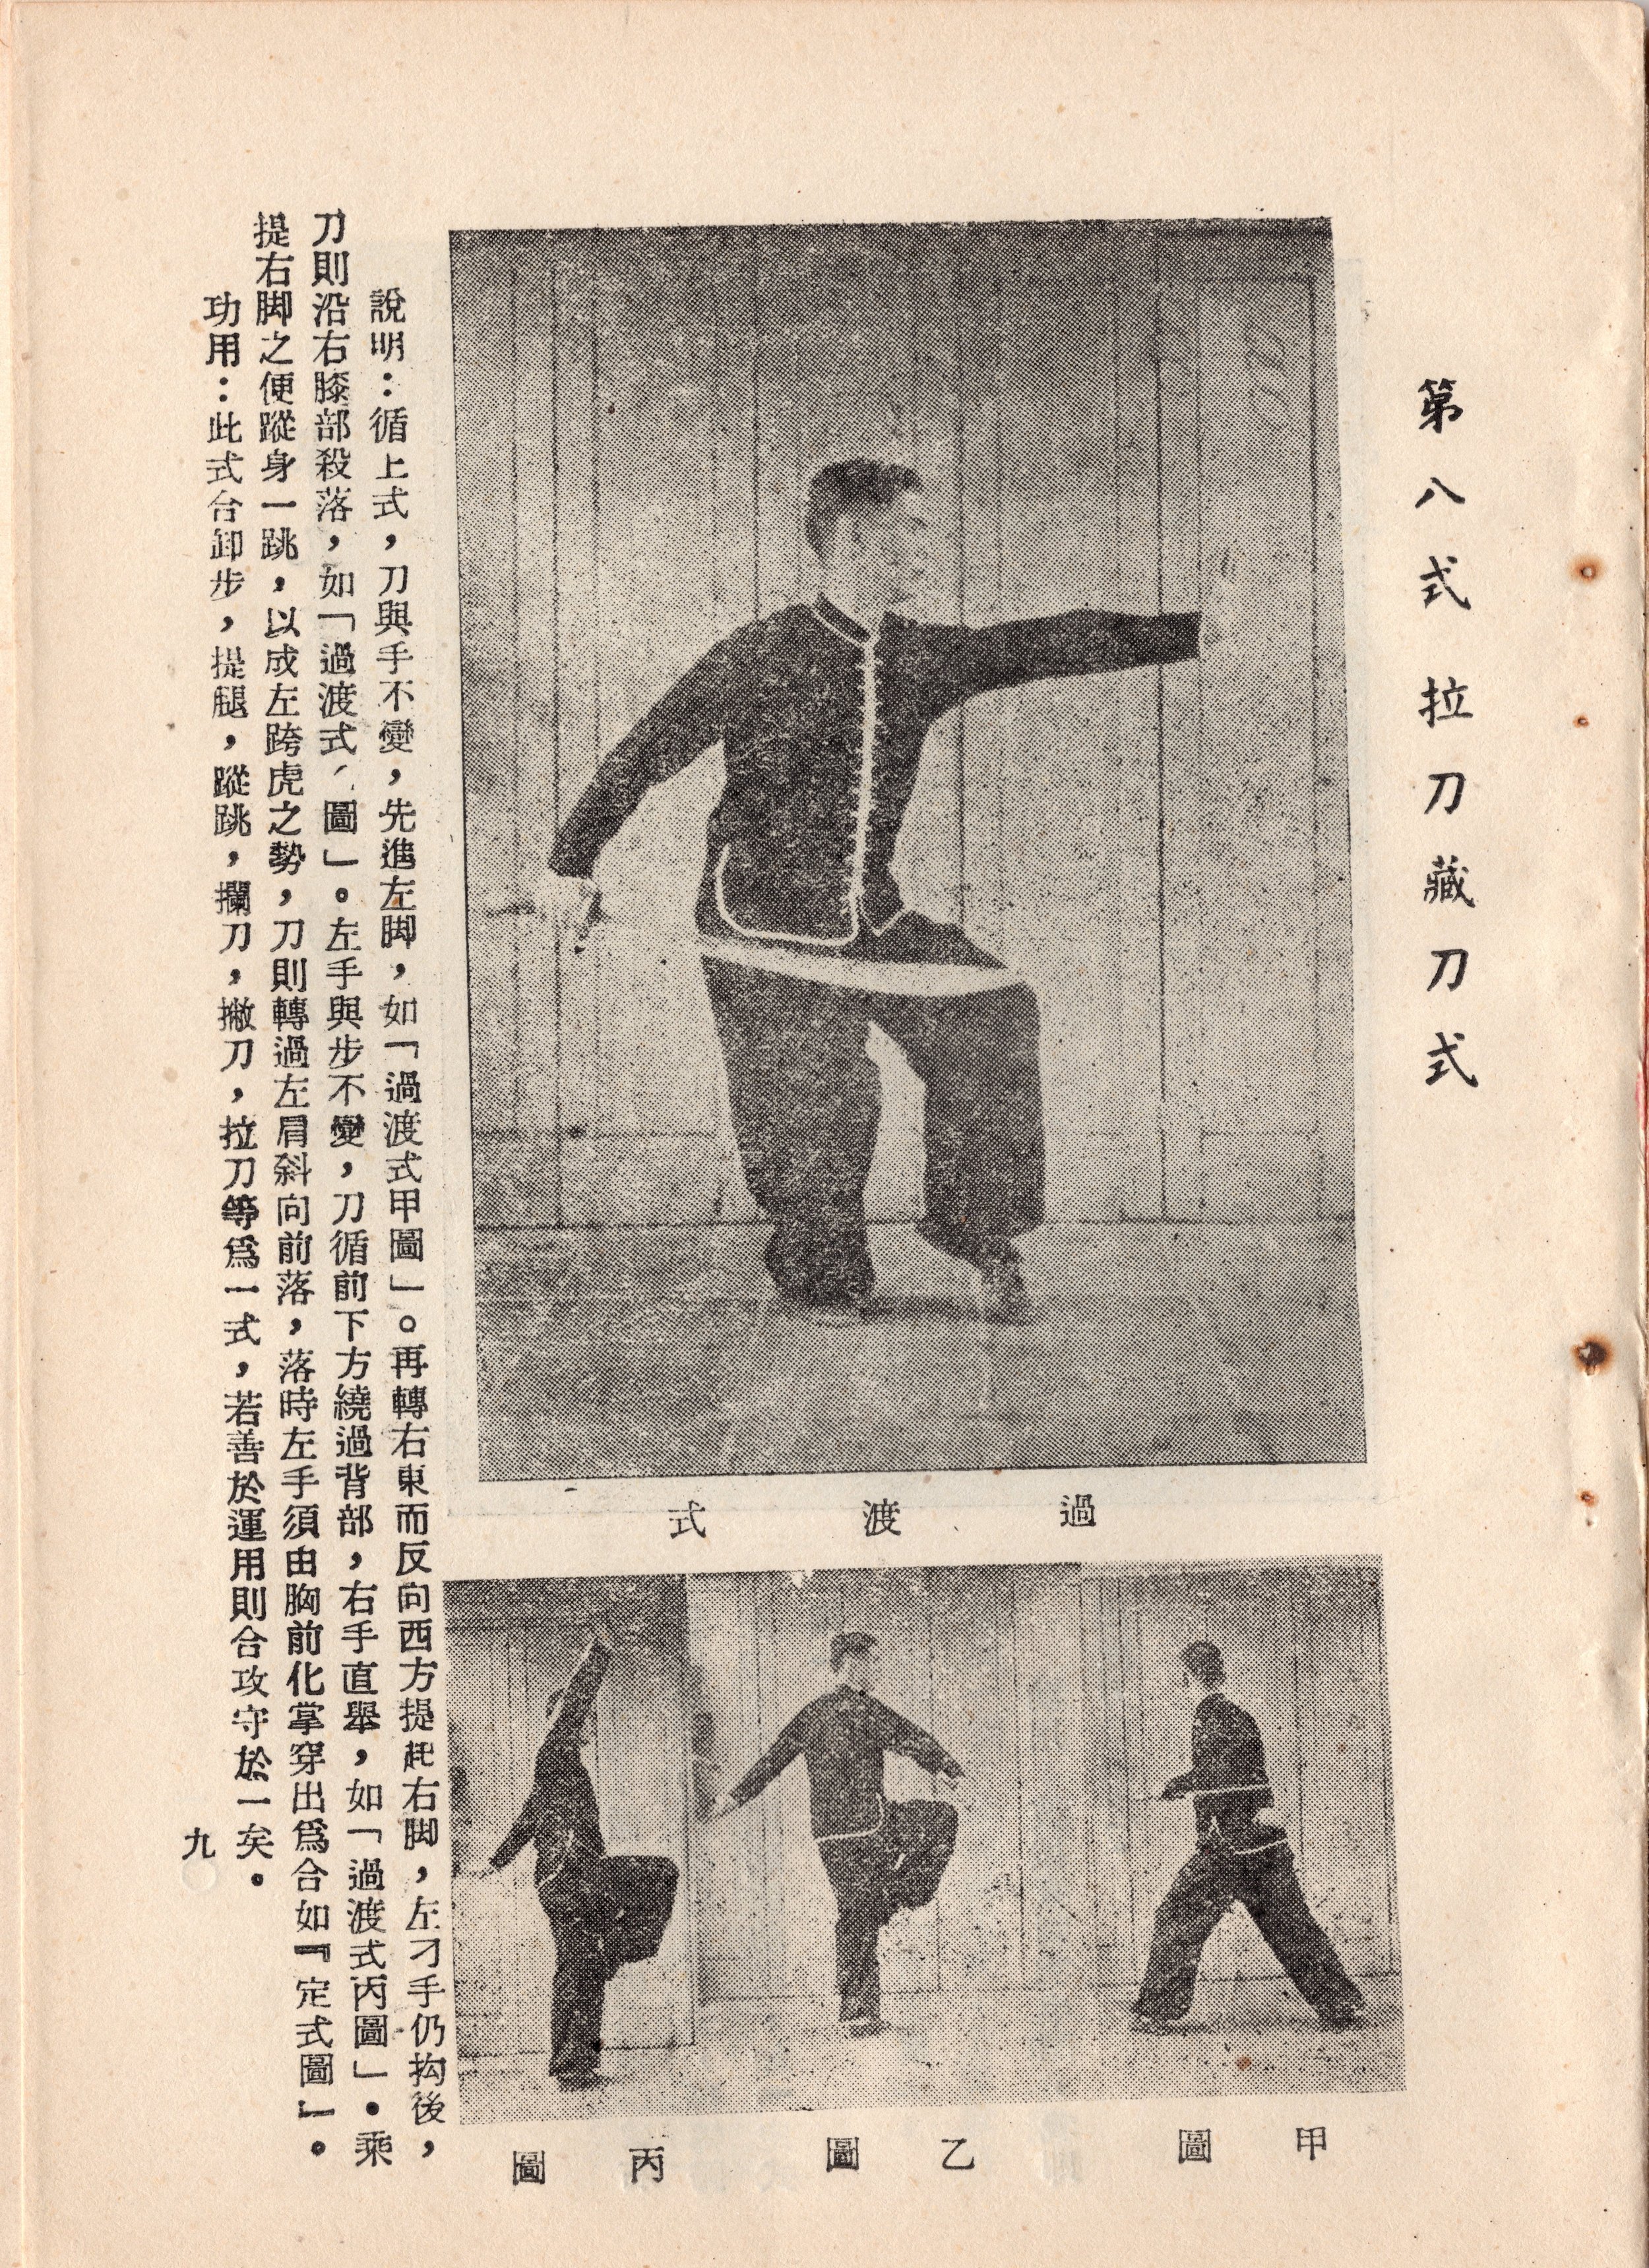 第八式 拉刀藏刀式
過渡式
甲圖
乙圖
丙圖
說明：循上式，刀與手不變，先進左脚，如「過渡式甲圖」。再轉右東而反向西方提起右脚，左刁手仍抅後，
刀則沿右膝部殺落，如「過渡式 圖」。左手與步不變，刀循前下方繞過背部，右手直舉，如「過渡式丙圖」。乘
提右脚之便蹤身一跳，以成左跨虎之勢，刀則轉過左肩斜向前落，落時左手須由胸前化掌穿出爲合如『定式圖』。
功用：此式台卸步，提腿，蹤跳，攔刀，撇刀，拉刀等爲一式，若善於運用則合攻守於一矣。
九